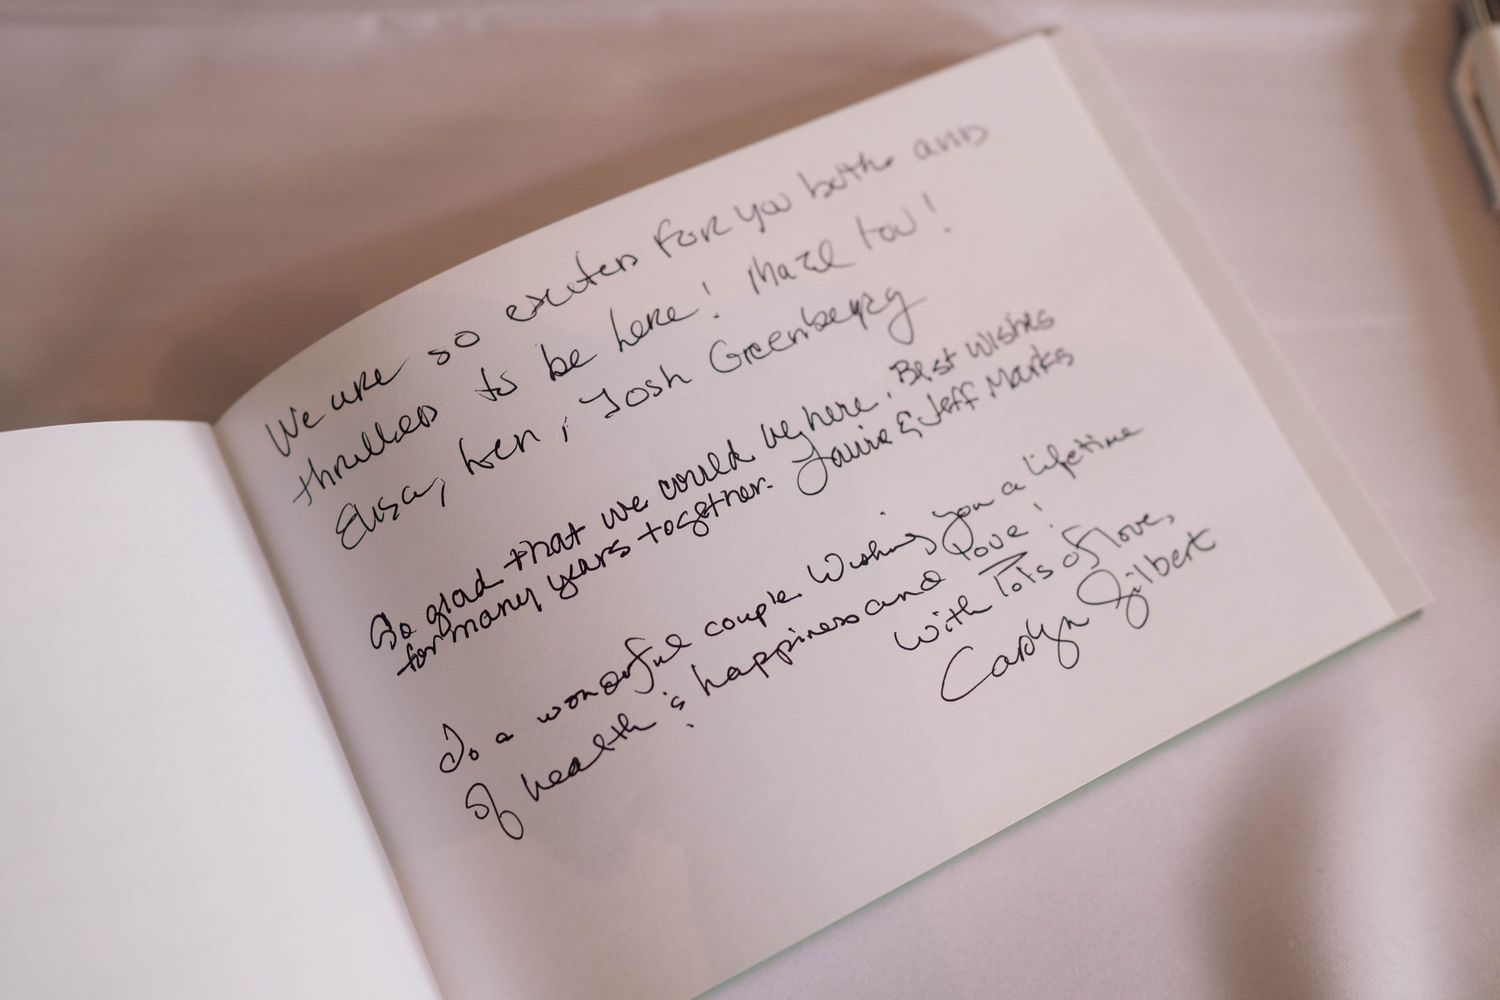 We are so excited for you both and
thrilled to be here! Mazel tov!
Elisa, Ken, Josh Greenberg
So glad that we could be here. Best Wishes
for many years together. Laurie & Jeff Marks
To a wonderful couple. Wishing you a lifetime
of health & happiness and love!
With lots of love,
Carolyn Gilbert